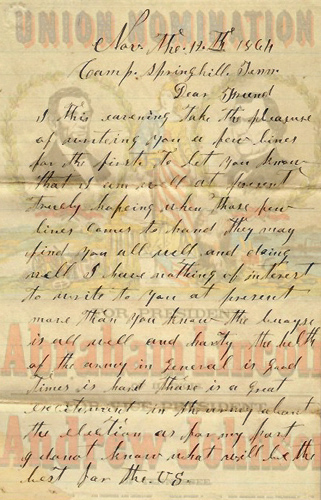 UNION NOMINATION
Nov. The. 12th 1864
Camp. Springhill. Tenn.
Dear Friend
I this eavening take the pleasure
of writeing you a few lines
for the first to let you know
that I am well at present
truely hopeing when those few
lines comes to hand they may
find you all well and doing
well I have nothing of interest
to write to you at present
FOR PRESIDENT
more than you know the boys
Abraham Lincoln
is all well and harty the helth
of the army in general is good
times is hard thare is a great
excitement in the army about
the election as for my part
Andrew Johnson
I do not know what will be the
best for the US.